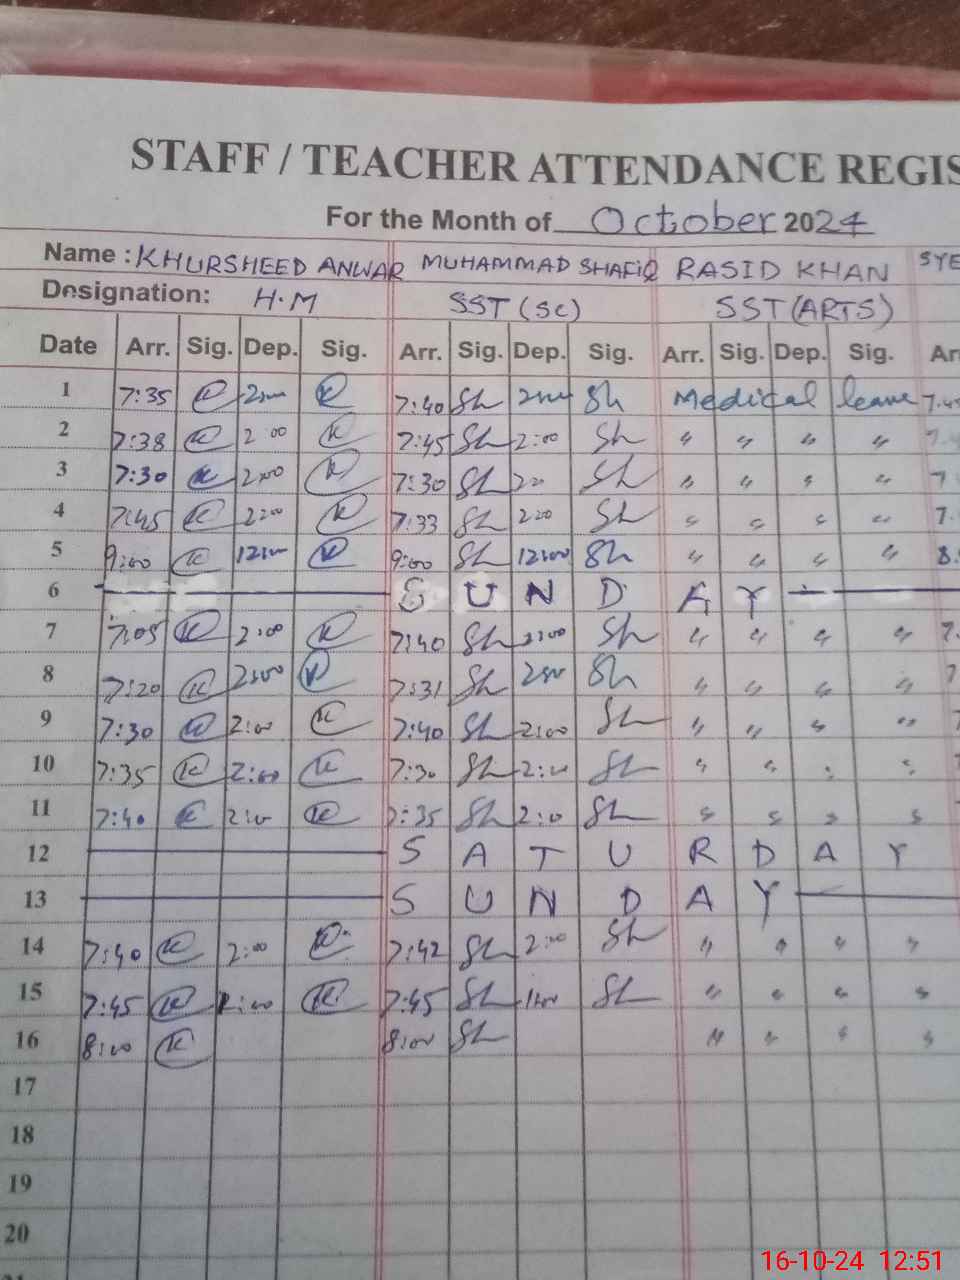 STAFF / TEACHER ATTENDANCE REGIS
For the Month of October 2024
Name : KHURSHEED ANWAR MUHAMMAD SHAFIQ RASID KHAN SYE
Designation: H.M SST (SC) SST (ARTS)
Date Arr. Sig. Dep. Sig. Arr. Sig. Dep. Sig. Arr. Sig. Dep. Sig. Arr
1 7:35 K K 7:40 Sh Sh Medical leave
2 7:38 K 2:00 K 7:45 Sh 2:00 Sh " " " "
3 7:30 K 2:00 K 7:30 Sh Sh " " " "
4 7:45 K 2:00 K 7:33 Sh 2:00 Sh " " " "
5 9:00 K K 9:00 Sh 12:00 Sh " " " "
6 S U N D A Y
7 7:05 K 2:00 K 7:40 Sh 2:00 Sh " " " "
8 7:20 K 2:00 K 7:31 Sh Sh " " " "
9 7:30 K 2:00 K 7:40 Sh 2:00 Sh " " " "
10 7:35 K 2:00 K 7:30 Sh 2:00 Sh " " " "
11 7:40 K K 7:35 Sh Sh " " " "
12 S A T U R D A Y
13 S U N D A Y
14 7:40 K 2:00 K 7:42 Sh 2:00 Sh " " " "
15 7:45 K K 7:45 Sh Sh " " " "
16 8:00 K 8:00 Sh " " " "
17
18
19
20
16-10-24 12:51